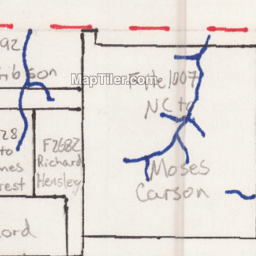 92
ibson
MapTiler.com
1007
NC to
Moses
Carson
28
to
mes
rest
F2682
Richard
Hensley
ord